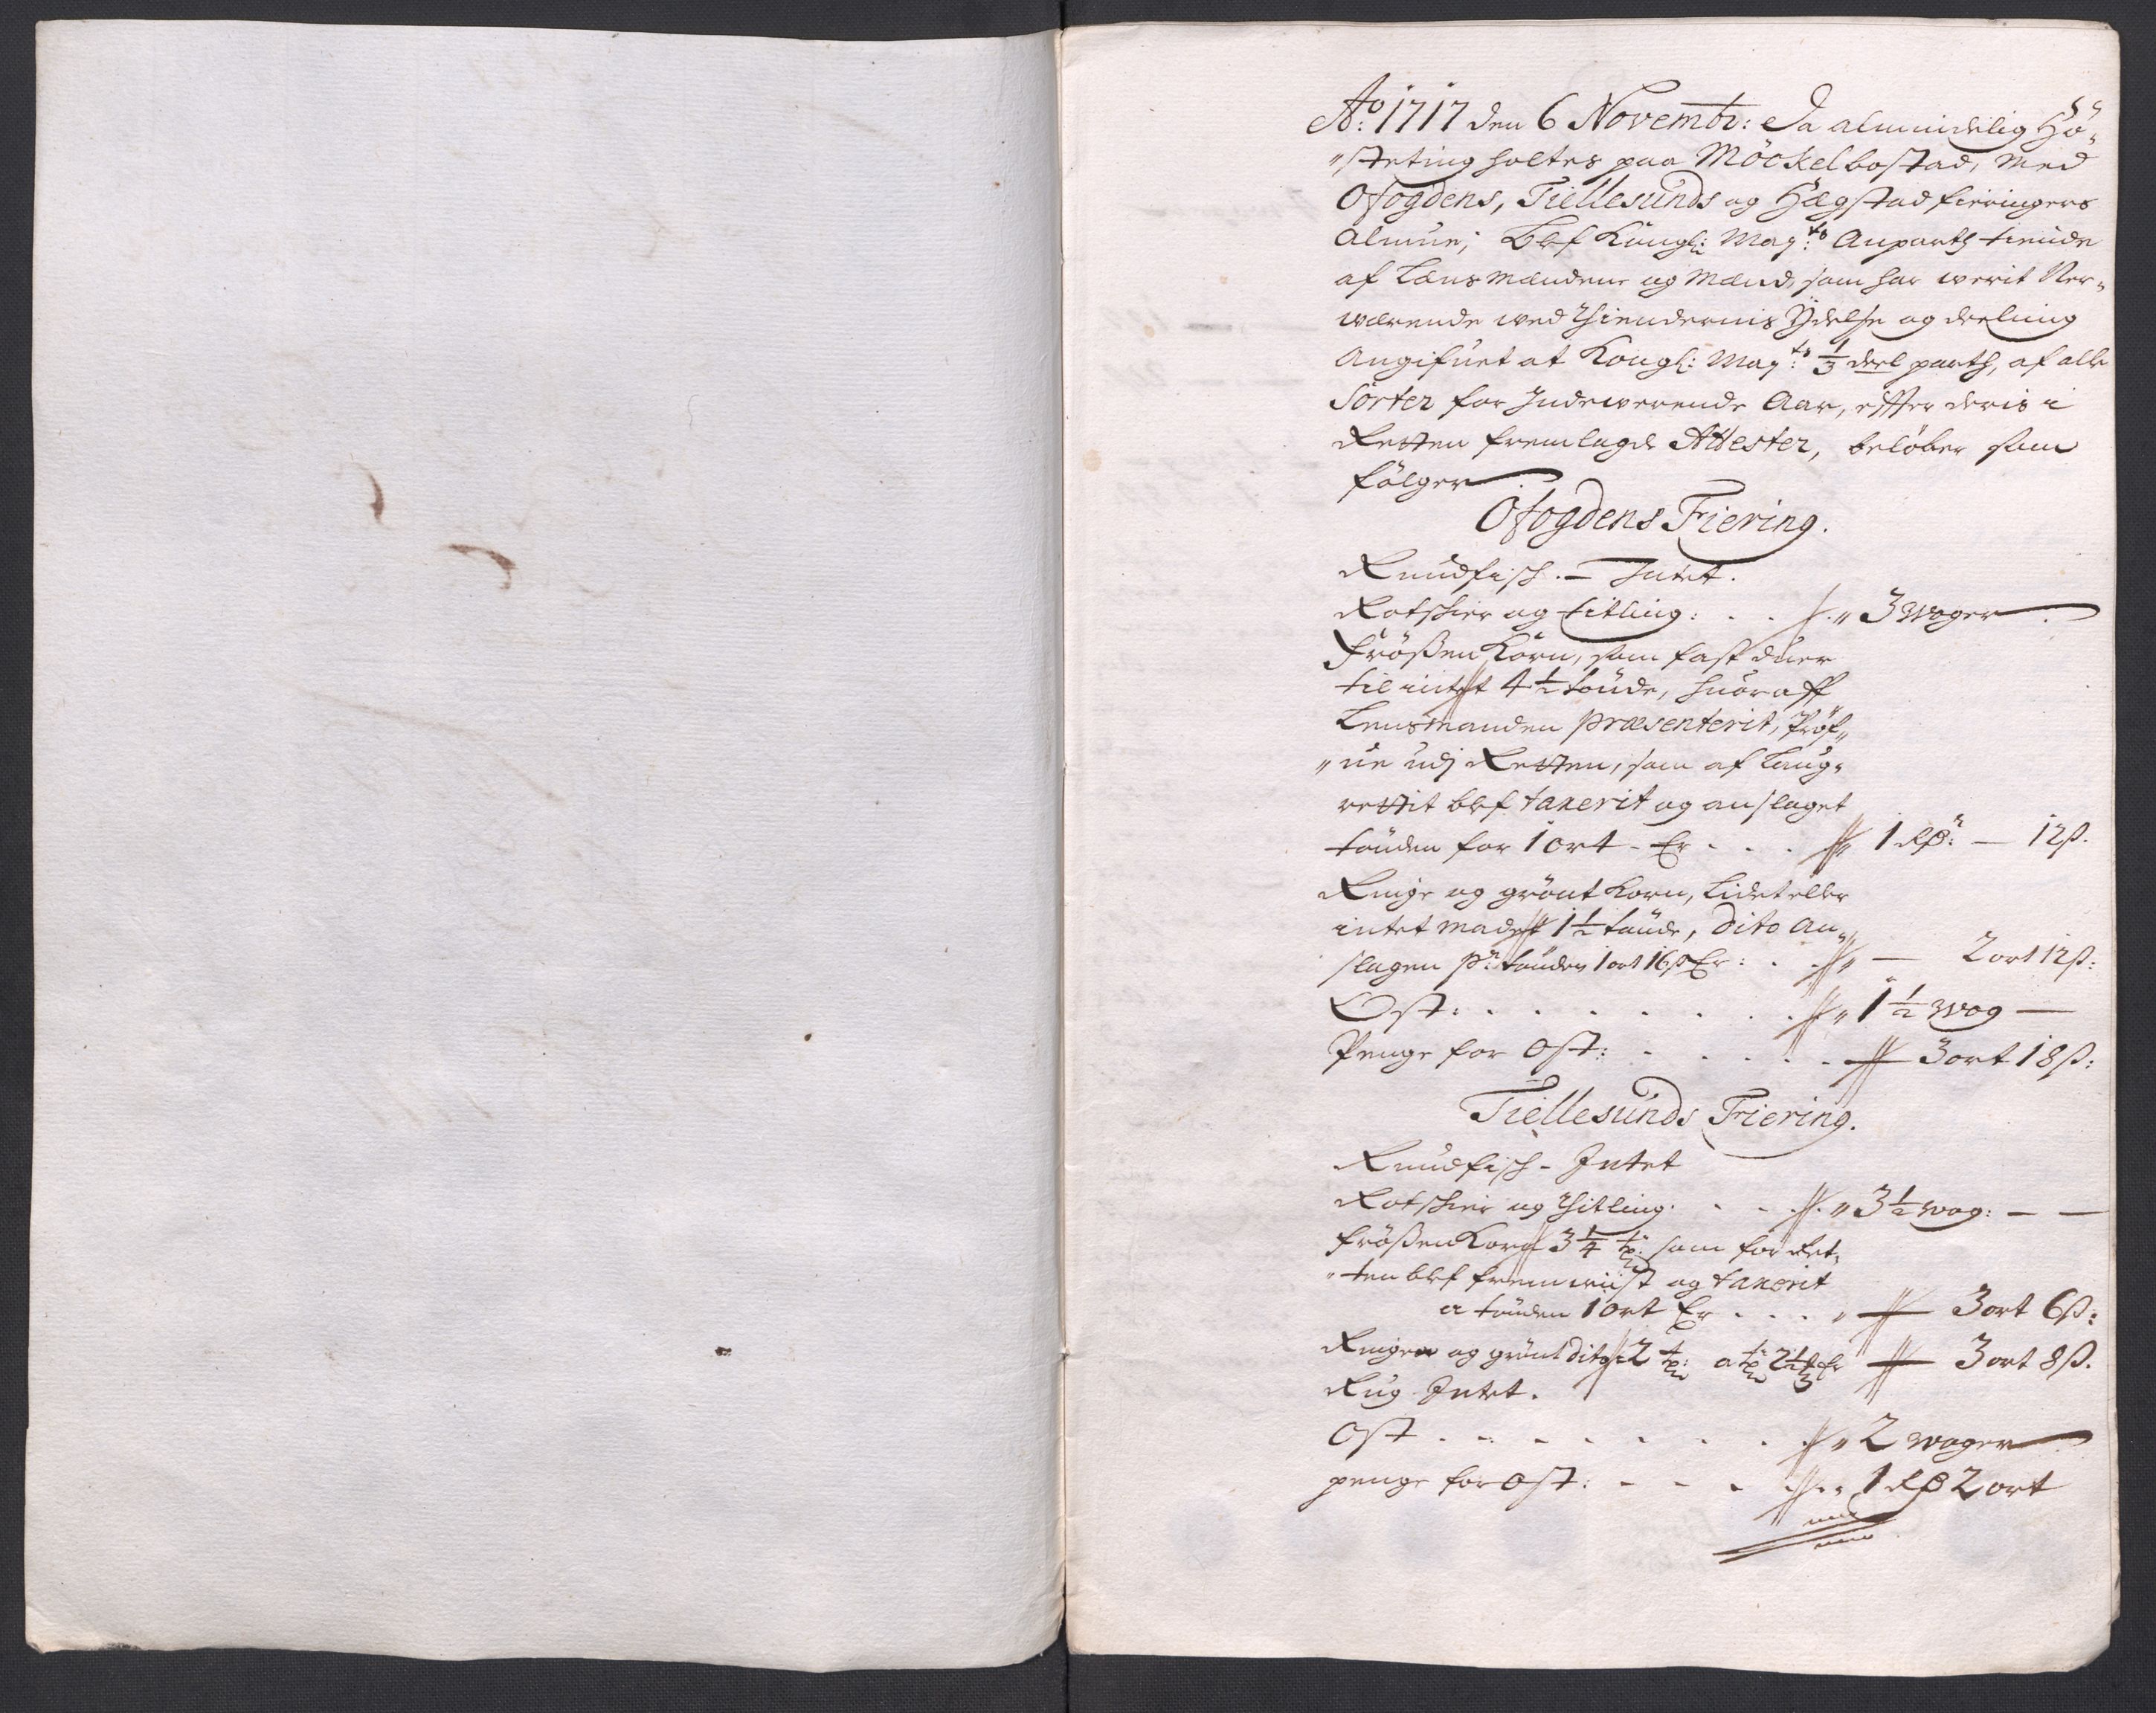 Ao: 1717 den 6 Novembr: Da almindelig Hö-
"steting holtes paa Möckelbostad, med
Ofogdens, Tiellesunds og Hægstad fieringers
Almue; blef Kongl: May:ts Anparts tiende
af Lænsmændene og Mænd, som har werit Ner-
wærende wed Thiendernis Ÿdelse og deeling
Angifuet at Kongl: May:ts 1/3 deel parts, af alle
Sorter for Indewerende Aar, effter deris i
Retten fremlagde Attester, belöber som
fölger
Ofogdens Fiering.
Rundfisch. - Intet.
Rotskier og titling: . . . " 3 woger
Frößen Korn, som fast duer
til intet 4 1/2 tönde, huoraff
Lensmanden præsenterit, Pröf-
"ue udj Retten, som af Laug-
rettit blef taxerit og anslaget
tönden for 1 ort - Er . . . 1 Rdr: — 12 ß.
Ringe og grönt Korn, Lidet eller
intet madet 1 1/2 tönde, dito An-
slagen pr: tönden 1 ort 16 ß Er: . . — 2 ort 12 ß:
Ost: . . . . . . . . " 1 1/2 wog —
Penge for Ost: . . . . . — 3 ort 18 ß:
Tiellesunds Fiering.
Rundfisch - Intet
Rotskier og Thitling. . . . " 3 1/2 wog: — —
frößen Korn 3 1/4 tr: som for Ret-
"ten blef fremwiist og taxerit
a tönden 1 ort Er . . . . — 3 ort 6 ß:
Ringe og grönt dito 2 tr: a tr 2 1/3 Er — 3 ort 8 ß.
Rug Intet.
Ost . . . . . . . . " 2 woger
penge for Ost: . . . . " 1 Rd 2 ort